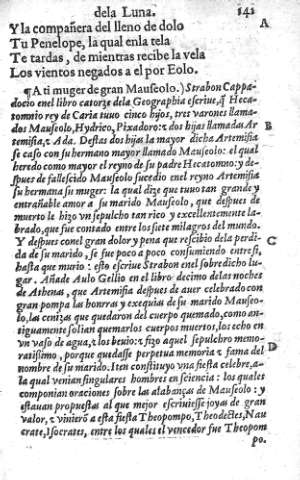 dela Luna. 141
Y la compañera del lleno de dolo A
Tu Penelope, la qual enla tela
Te tardas, de mientras recibe la vela
Los vientos negados a el por Eolo.
¶A ti muger de gran Mauseolo.) Strabon Cappa-
docio enel libro catorze dela Geographia escriue, q̃ Heca-
tomnio rey de Caria tuuo cinco hijos, tres varones llama-
dos Mauseolo, Hydrico, Pixadoro: ⁊ dos hijas llamadas Ar B
temisia, ⁊ Ada. Destas dos hijas la mayor dicha Artemisia
se caso con su hermano mayor llamado Mauseolo: el qual
heredo como mayor el reyno de su padre Hecatomno: y de-
spues de fallescido Mauseolo sucedio enel reyno Artemisia
su hermana su muger: la qual dize que tuuo tan grande y
entrañable amor a su marido Mauseolo, que despues de
muerto le hizo vn sepulcho tan rico y excellentemente la-
brado, que fue contado entre los siete milagros del mundo.
Y despues conel gran dolor y pena que rescibio dela perdi- C
da de su marido, se fue poco a poco consumiendo entre si,
hasta que murio: esto escriue Strabon enel sobredicho lu-
gar. Añade Aulo Gellio en el libro decimo delas noches
de Athenas, que Artemisia despues de auer celebrado con
gran pompa las honrras y exequias de su marido Mauseo-
lo, las cenizas que quedaron del cuerpo quemado, como an-
tiguamente solian quemarlos cuerpos muertos, los echo en
vn vaso de agua, ⁊ los beuio: ⁊ hizo aquel sepulchro memo-
ratissimo, porque quedasse perpetua memoria ⁊ fama del D
nombre de su marido. Iten constituyo vna fiesta celebre, a-
la qual venian singulares hombres en sciencia: los quales
componian oraciones sobre las alabanças de Mauseolo: y
estauan propuestas al que mejor escriuiesse joyas de gran
valor, ⁊ vinierõ a esta fiesta Theopompo, Theodectes, Nau
crate, Isocrates, entre los quales el vencedor fue Theopom
po.